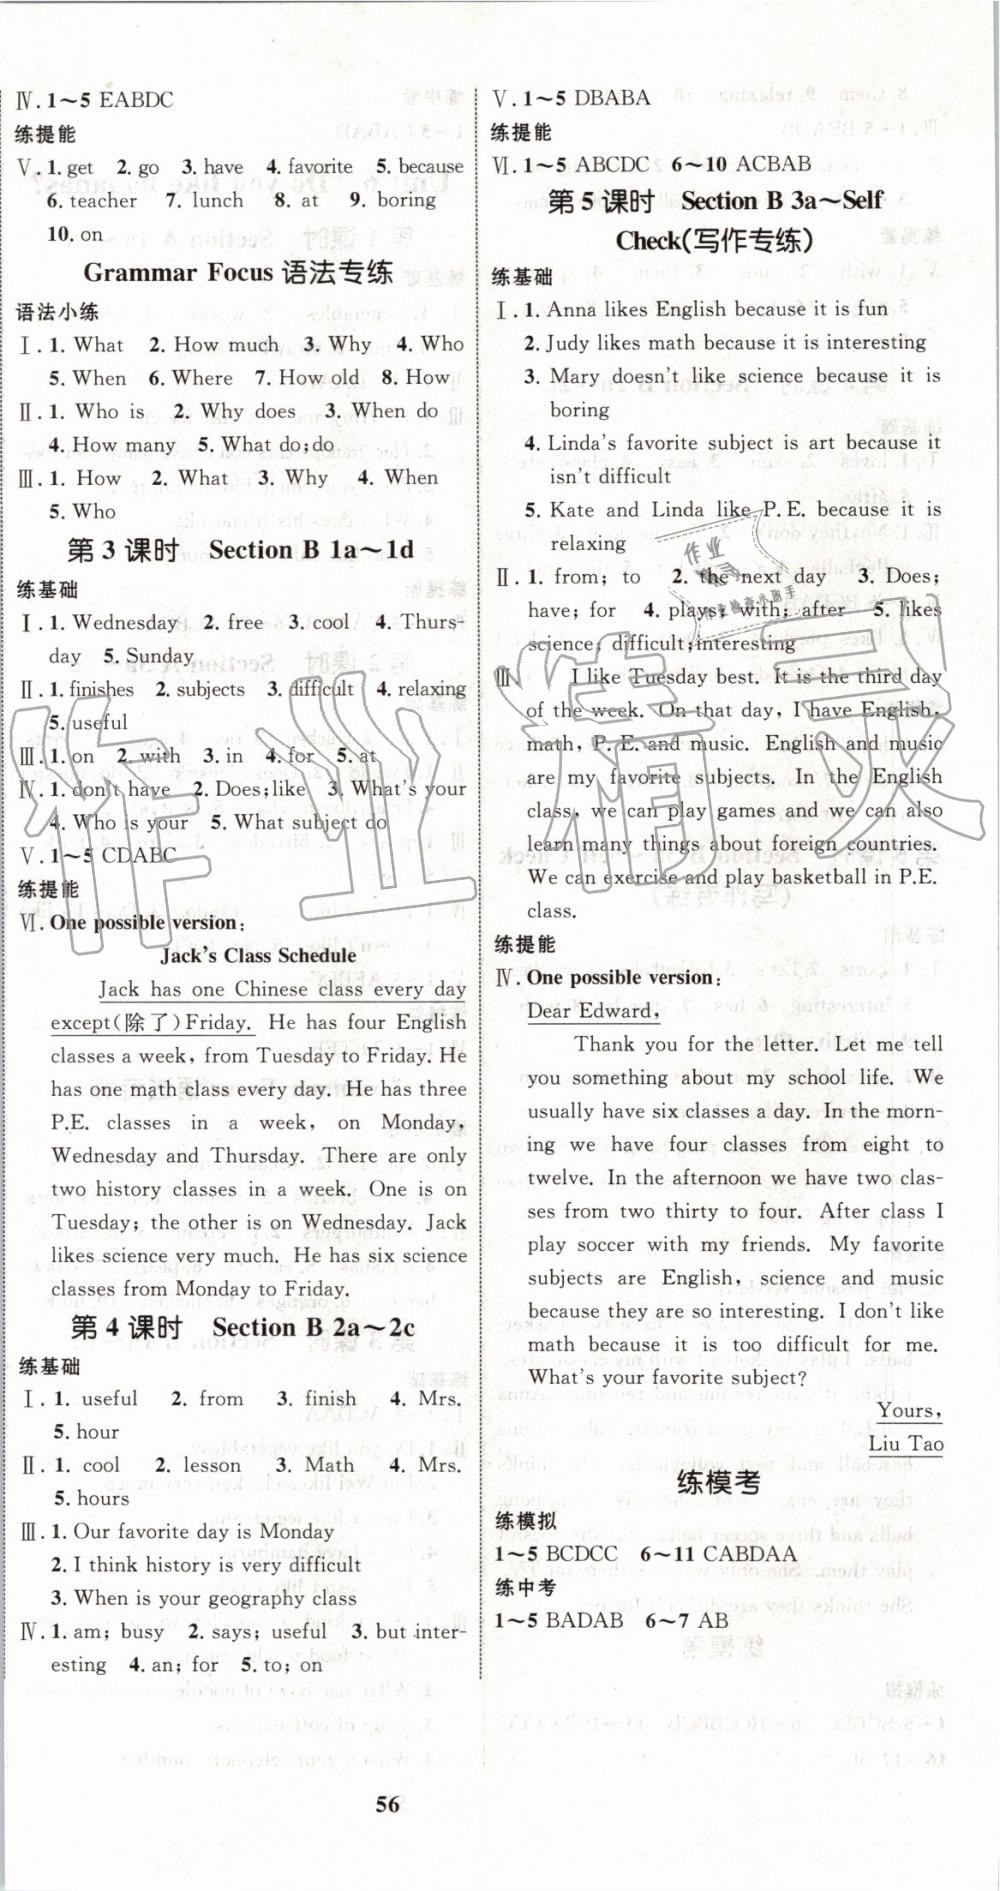 Ⅳ. 1～5 EABDC
练提能
Ⅴ. 1. get 2. go 3. have 4. favorite 5. because
6. teacher 7. lunch 8. at 9. boring
10. on
Grammar Focus 语法专练
语法小练
Ⅰ. 1. What 2. How much 3. Why 4. Who
5. When 6. Where 7. How old 8. How
Ⅱ. 1. Who is 2. Why does 3. When do
4. How many 5. What do;do
Ⅲ. 1. How 2. What 3. Why 4. When
5. Who
第 3 课时 Section B 1a～1d
练基础
Ⅰ. 1. Wednesday 2. free 3. cool 4. Thurs-
day 5. Sunday
Ⅱ. 1. finishes 2. subjects 3. difficult 4. relaxing
5. useful
Ⅲ. 1. on 2. with 3. in 4. for 5. at
Ⅳ. 1. don't have 2. Does;like 3. What's your
4. Who is your 5. What subject do
Ⅴ. 1～5 CDABC
练提能
Ⅵ. One possible version:
Jack's Class Schedule
Jack has one Chinese class every day
except(除了)Friday. He has four English
classes a week, from Tuesday to Friday. He
has one math class every day. He has three
P.E. classes in a week, on Monday,
Wednesday and Thursday. There are only
two history classes in a week. One is on
Tuesday; the other is on Wednesday. Jack
likes science very much. He has six science
classes from Monday to Friday.
第 4 课时 Section B 2a～2c
练基础
Ⅰ. 1. useful 2. from 3. finish 4. Mrs.
5. hour
Ⅱ. 1. cool 2. lesson 3. Math 4. Mrs.
5. hours
Ⅲ. 1. Our favorite day is Monday
2. I think history is very difficult
3. When is your geography class
Ⅳ. 1. am; busy 2. says; useful 3. but inter-
esting 4. an; for 5. to; on
Ⅴ. 1～5 DBABA
练提能
Ⅵ. 1～5 ABCDC 6～10 ACBAB
第 5 课时 Section B 3a～Self
Check(写作专练)
练基础
Ⅰ. 1. Anna likes English because it is fun
2. Judy likes math because it is interesting
3. Mary doesn't like science because it is
boring
4. Linda's favorite subject is art because it
isn't difficult
5. Kate and Linda like P. E. because it is
relaxing
Ⅱ. 1. from; to 2. the next day 3. Does;
have; for 4. plays; with; after 5. likes
science; difficult;interesting
Ⅲ. I like Tuesday best. It is the third day
of the week. On that day, I have English,
math, P. E. and music. English and music
are my favorite subjects. In the English
class, we can play games and we can also
learn many things about foreign countries.
We can exercise and play basketball in P.E.
class.
练提能
Ⅳ. One possible version:
Dear Edward,
Thank you for the letter. Let me tell
you something about my school life. We
usually have six classes a day. In the morn-
ing we have four classes from eight to
twelve. In the afternoon we have two clas-
ses from two thirty to four. After class I
play soccer with my friends. My favorite
subjects are English, science and music
because they are so interesting. I don't like
math because it is too difficult for me.
What's your favorite subject?
Yours,
Liu Tao
练模考
练模拟
1～5 BCDCC 6～11 CABDAA
练中考
1～5 BADAB 6～7 AB
56
作业精灵